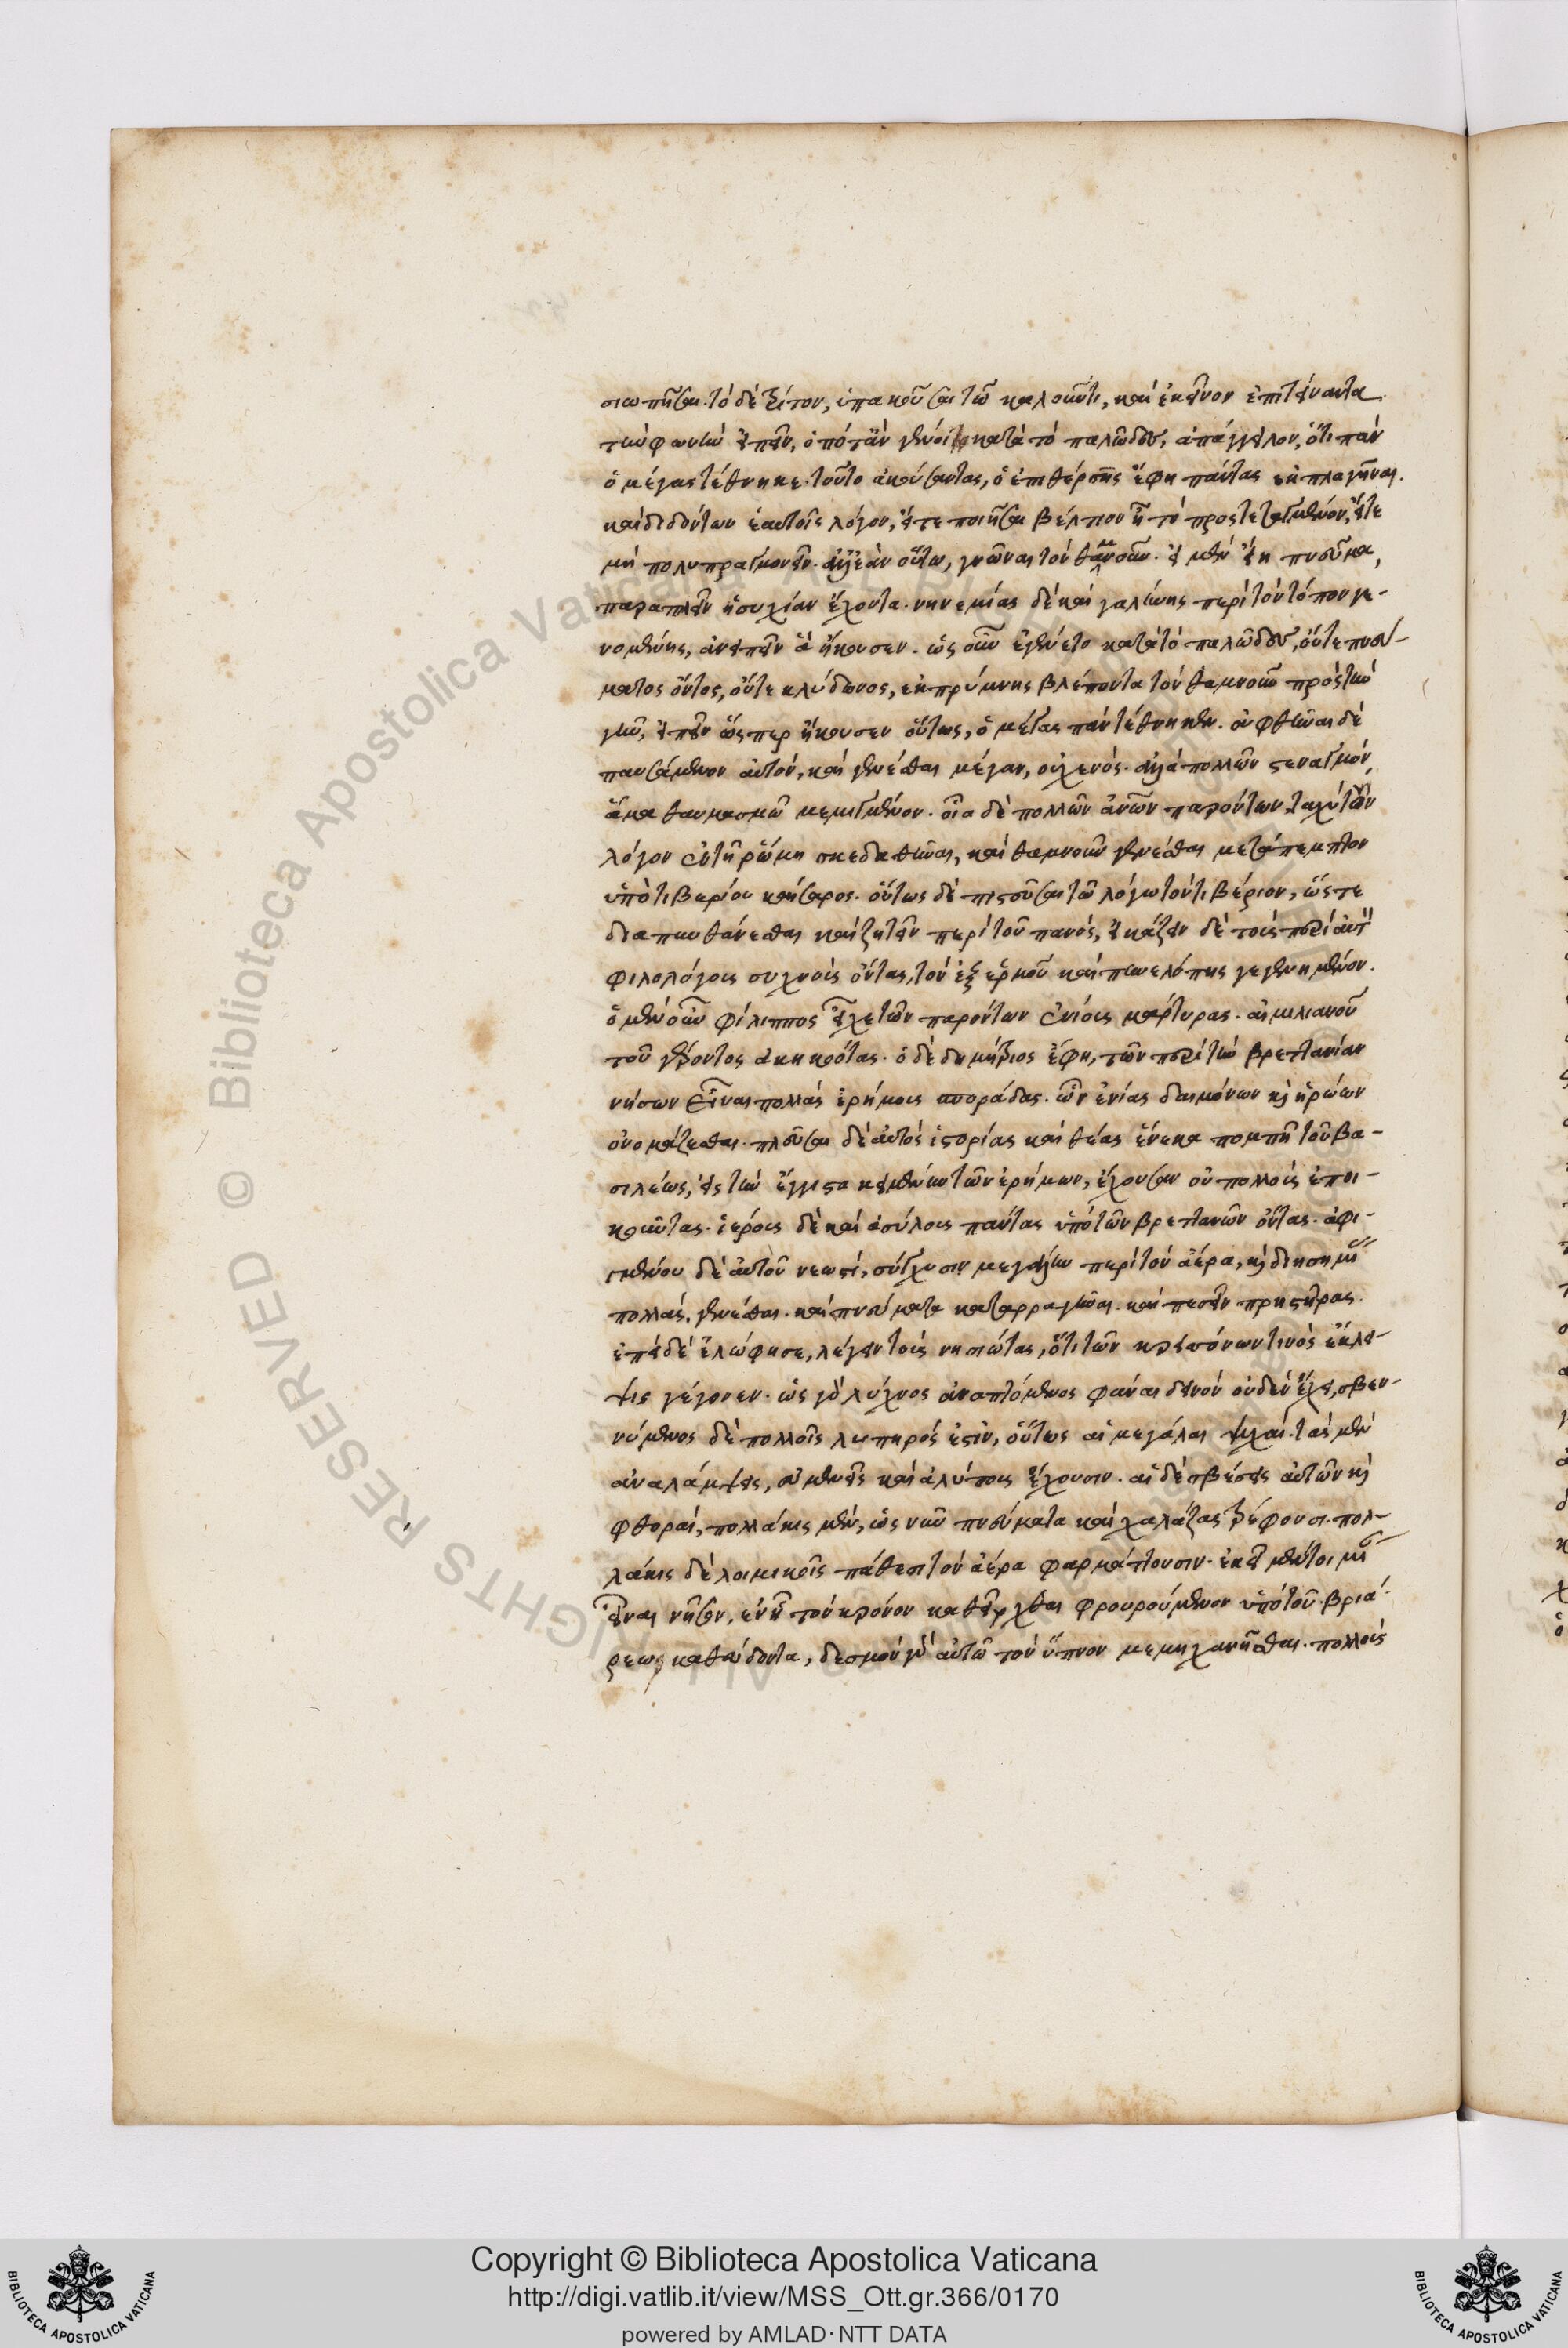 σιωπῆσαι. τὸ δὲ τρίτον, ὑπακοῦσαι τῶ καλοῦντι, καὶ ἐκεῖνον ἐπιτείναντα
τὴν φωνὴν εἰπεῖν, ὁπόταν γένῃ κατὰ τὸ παλῶδες, ἀπάγγειλον, ὅτι πὰν
ὁ μέγας τέθνηκε. τοῦτο ἀκούσαντας, ὁ ἐπιθέρσης ἔφη πάντας ἐκπλαγῆναι.
καὶ διδόντων ἑαυτοῖς λόγον, εἴτε ποιῆσαι βέλτιον ἢ τὸ προστεταγμένον, εἴτε
μὴ πολυπραγμονεῖν. ἀλλ' ἐὰν οὕτω, γνῶναι τὸν θαμνοῦν. εἰ μὲν εἴη πνεῦμα,
παραπλεῖν ἡσυχίαν ἔχοντα. νηνεμίας δὲ καὶ γαλήνης περὶ τὸν τόπον γε-
νομένης, ἀνειπεῖν ἃ ἤκουσεν. ὡς οὖν ἐγένετο κατὰ τὸ παλῶδες, οὔτε πνεύ-
ματος ὄντος, οὔτε κλύδωνος, ἐκ πρύμνης βλέποντα τὸν θαμνοῦν πρὸς τὴν
γῆν, εἰπεῖν ὥσπερ ἤκουσεν οὕτως, ὁ μέγας πὰν τέθνηκεν. οὐ φθῆναι δὲ
παυσάμενον αὐτὸν, καὶ γενέσθαι μέγαν, οὐχ ἑνὸς. ἀλλὰ πολλῶν στεναγμὸν,
ἅμα θαυμασμῶ μεμιγμένον. οἷα δὲ πολλῶν ἀνων παρόντων, ταχὺ τὸν
λόγον ἐν τῆ ῥώμη σκεδασθῆναι, καὶ θαμνοῦν γενέσθαι μετάπεμπτον
ὑπὸ τιβερίου καίσαρος. οὕτως δὲ πιστεῦσαι τῶ λόγω τὸν τιβέριον, ὥστε
διαπυνθάνεσθαι καὶ ζητεῖν περὶ τοῦ πανός, εἰκάζειν δὲ τοὺς περὶ αὐτ
φιλολόγοις συχνοὺς ὄντας, τὸν ἐξ ἑρμοῦ καὶ πηνελόπης γεγενημένον.
ὁ μὲν οὖν φίλιππος εἶχε τῶν παρόντων ἐνίοις μάρτυρας. αἰμιλιανοῦ
τοῦ γέροντος ἀκηκοότας. ὁ δὲ δημήτριος ἔφη, τῶν περὶ τὴν βρεττανίαν
νήσων εἶναι πολλὰς ἐρήμοις σποράδας. ὧν ἐνίας δαιμόνων κὶ ἡρώων
ὀνομάζεσθαι. πλεῦσαι δὲ αὐτὸς ἱστορίας καὶ θέας ἕνεκα πομπῆ τοῦ βα-
σιλέως, εἰς τὴν ἔγγιστα κειμένην τῶν ἐρήμων, ἔχουσαν οὐ πολλοὺς ἐποι-
κοῦντας. ἱεροὺς δὲ καὶ ἀσύλοις πάντας ὑπὸ τῶν βρεττανῶν ὄντας. ἀφι-
κμένου δὲ αὐτοῦ νεωστί, σύγχυσιν μεγάλην περὶ τὸν ἀέρα, κὶ διοσημ
πολλάς, γενέσθαι. καὶ πνεύματα καταρραγῆναι. καὶ πεσεῖν πρηστῆρας.
ἐπεὶ δὲ ἐλώφησε, λέγειν τοὺς νησιώτας, ὅτι τῶν κρεισσόνων τινὸς ἔκλει-
ψις γέγονεν. ὡς γὰρ λύχνος ἀναπτόμενος φάναι δεινὸν οὐδὲν ἔχει, σβεν-
νύμενος δὲ πολλοῖς λυπηρός ἐστιν, οὕτως αἱ μεγάλαι ψυχαὶ. τὰς μὲν
ἀναλάμψεις, εὐμενεῖς καὶ ἀλύποις ἔχουσιν. αἱ δὲ σβέσεις αὐτῶν κὶ
φθοραί, πολλάκις μὲν, ὡς νῦν πνεύματα καὶ χαλάζας τρέφουσι. πολ-
λάκις δὲ λοιμικοῖς πάθεσι τὸν ἀέρα φαρμάττουσιν. ἐκεῖ μέντοι μί
εἶναι νῆσον, ἐν ἧ τὸν κρόνον καθεῖρχθαι φρουρούμενον ὑπὸ τοῦ βριά-
ρεως καθεύδοντα, δεσμὸν γὰρ αὐτῶ τὸν ὕπνον μεμηχανῆσθαι. πολλοὺς
Copyright © Biblioteca Apostolica Vaticana
http://digi.vatlib.it/view/MSS_Ott.gr.366/0170
powered by AMLAD·NTT DATA